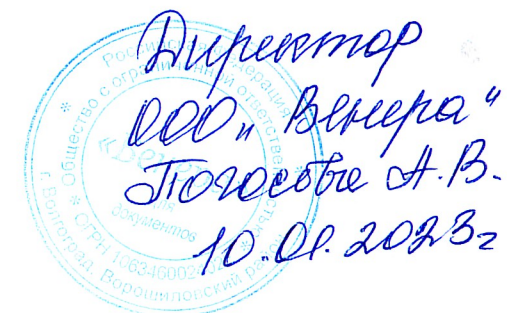 Директор
ООО „Венера“
А.В.
10.01.2023г
Российская Федерация
Общество с ограниченной ответственностью
«Венера»
Для
документов
ОГРН
г. Волгоград, Ворошиловский